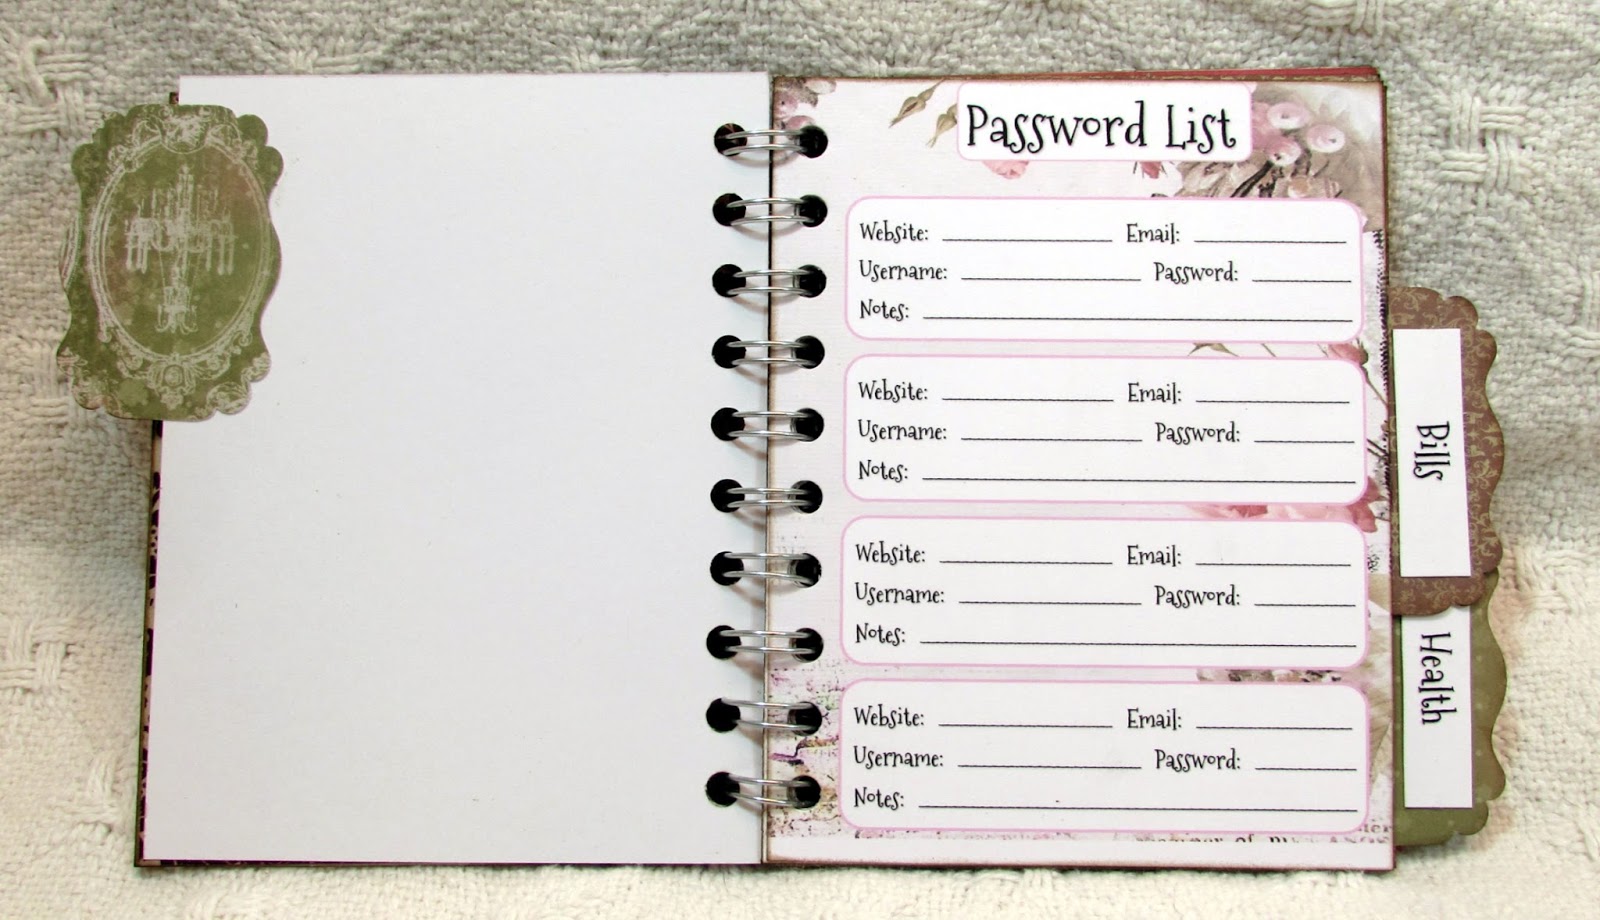 Password List
Website: Email:
Username: Password:
Notes:
Website: Email:
Username: Password:
Notes:
Website: Email:
Username: Password:
Notes:
Website: Email:
Username: Password:
Notes:
Bills
Health